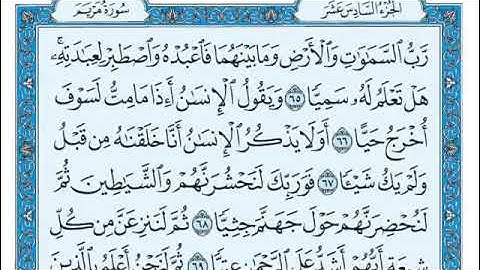 الجزء السادس عشر
سورة مريم
رَّبُّ السَّمَاوَاتِ وَالْأَرْضِ وَمَا بَيْنَهُمَا فَاعْبُدْهُ وَاصْطَبِرْ لِعِبَادَتِهِ
هَلْ تَعْلَمُ لَهُ سَمِيًّا ٦٥ وَيَقُولُ الْإِنسَانُ أَإِذَا مَا مِتُّ لَسَوْفَ
أُخْرَجُ حَيًّا ٦٦ أَوَلَا يَذْكُرُ الْإِنسَانُ أَنَّا خَلَقْنَاهُ مِن قَبْلُ
وَلَمْ يَكُ شَيْئًا ٦٧ فَوَرَبِّكَ لَنَحْشُرَنَّهُمْ وَالشَّيَاطِينَ ثُمَّ
لَنُحْضِرَنَّهُمْ حَوْلَ جَهَنَّمَ جِثِيًّا ٦٨ ثُمَّ لَنَنزِعَنَّ مِن كُلِّ
شِيعَةٍ أَيُّهُمْ أَشَدُّ عَلَى الرَّحْمَٰنِ عِتِيًّا ٦٩ ثُمَّ لَنَحْنُ أَعْلَمُ بِالَّذِينَ